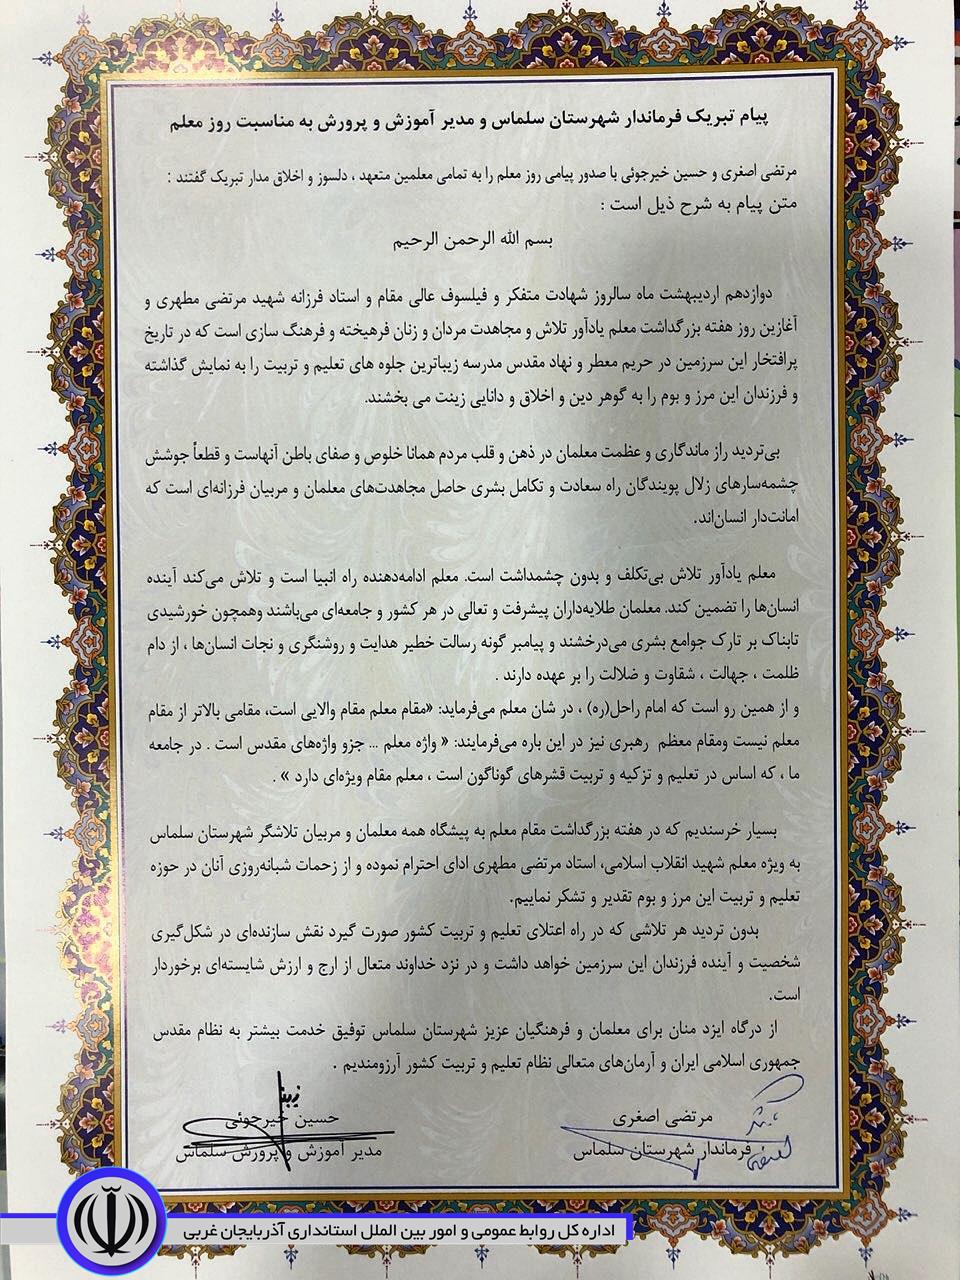 پیام تبریک فرماندار شهرستان سلماس و مدیر آموزش و پرورش به مناسبت روز معلم
مرتضی اصغری و حسین خیرجوئی با صدور پیامی روز معلم را به تمامی معلمین متعهد ، دلسوز و اخلاق مدار تبریک گفتند :
متن پیام به شرح ذیل است :
بسم الله الرحمن الرحیم
دوازدهم اردیبهشت ماه سالروز شهادت متفکر و فیلسوف عالی مقام و استاد فرزانه شهید مرتضی مطهری و
آغازین روز هفته بزرگداشت معلم یادآور تلاش و مجاهدت مردان و زنان فرهیخته و فرهنگ سازی است که در تاریخ
پرافتخار این سرزمین در حریم معطر و نهاد مقدس مدرسه زیباترین جلوه های تعلیم و تربیت را به نمایش گذاشته
و فرزندان این مرز و بوم را به گوهر دین و اخلاق و دانایی زینت می بخشند.
بی‌تردید راز ماندگاری و عظمت معلمان در ذهن و قلب مردم همانا خلوص و صفای باطن آنهاست و قطعاً جوشش
چشمه‌سارهای زلال پویندگان راه سعادت و تکامل بشری حاصل مجاهدت‌های معلمان و مربیان فرزانه‌ای است که
امانت‌دار انسان‌اند.
معلم یادآور تلاش بی‌تکلف و بدون چشمداشت است. معلم ادامه‌دهنده راه انبیا است و تلاش می‌کند آینده
انسان‌ها را تضمین کند. معلمان طلایه‌داران پیشرفت و تعالی در هر کشور و جامعه‌ای می‌باشند وهمچون خورشیدی
تابناک بر تارک جوامع بشری می‌درخشند و پیامبر گونه رسالت خطیر هدایت و روشنگری و نجات انسان‌ها ، از دام
ظلمت ، جهالت ، شقاوت و ضلالت را بر عهده دارند .
و از همین رو است که امام راحل(ره) ، در شان معلم می‌فرماید: «مقام معلم مقام والایی است، مقامی بالاتر از مقام
معلم نیست ومقام معظم رهبری نیز در این باره می‌فرمایند: « واژه معلم ... جزو واژه‌های مقدس است . در جامعه
ما ، که اساس در تعلیم و تزکیه و تربیت قشرهای گوناگون است ، معلم مقام ویژه‌ای دارد » .
بسیار خرسندیم که در هفته بزرگداشت مقام معلم به پیشگاه همه معلمان و مربیان تلاشگر شهرستان سلماس
به ویژه معلم شهید انقلاب اسلامی، استاد مرتضی مطهری ادای احترام نموده و از زحمات شبانه‌روزی آنان در حوزه
تعلیم و تربیت این مرز و بوم تقدیر و تشکر نماییم.
بدون تردید هر تلاشی که در راه اعتلای تعلیم و تربیت کشور صورت گیرد نقش سازنده‌ای در شکل‌گیری
شخصیت و آینده فرزندان این سرزمین خواهد داشت و در نزد خداوند متعال از ارج و ارزش شایسته‌ای برخوردار
است.
از درگاه ایزد منان برای معلمان و فرهنگیان عزیز شهرستان سلماس توفیق خدمت بیشتر به نظام مقدس
جمهوری اسلامی ایران و آرمان‌های متعالی نظام تعلیم و تربیت کشور آرزومندیم .
مرتضی اصغری
فرماندار شهرستان سلماس
حسین خیرجوئی
مدیر آموزش و پرورش سلماس
اداره کل روابط عمومی و امور بین الملل استانداری آذربایجان غربی